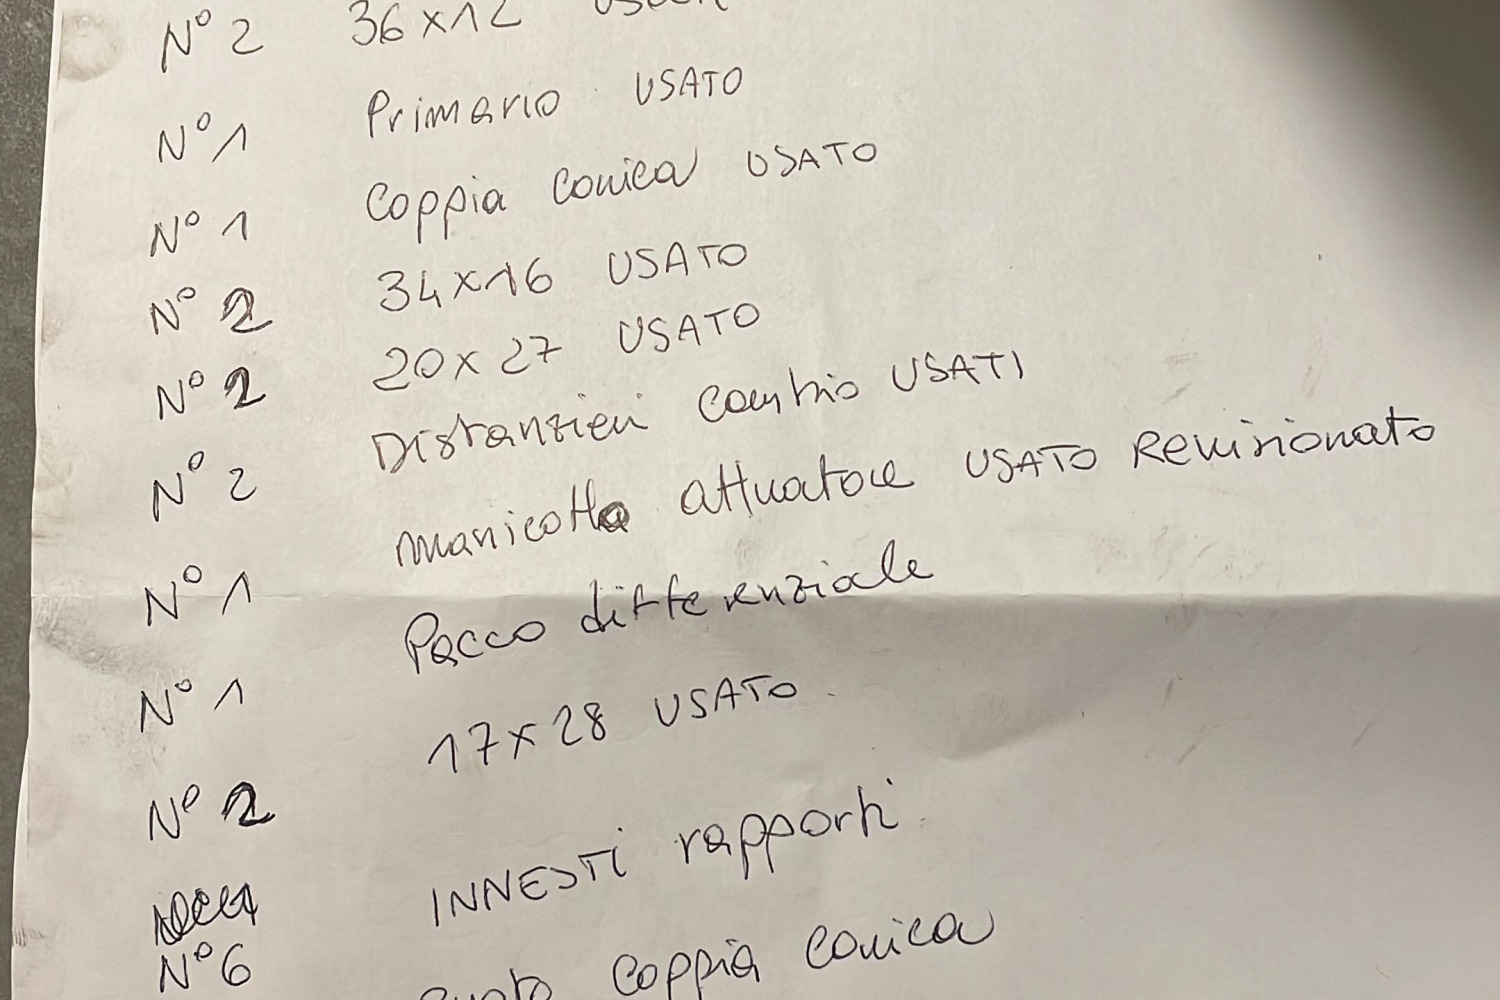 N° 2 36x12
N° 1 Primario USATO
N° 1 Coppia conica USATO
N° 2 34x16 USATO
N° 2 20x27 USATO
N° 2 Distanzieri cambio USATI
N° 1 manicotto attuatore USATO Revisionato
N° 1 Pacco differenziale
N° 2 17x28 USATO
N° 6 INNESTI rapporti
Coppia conica